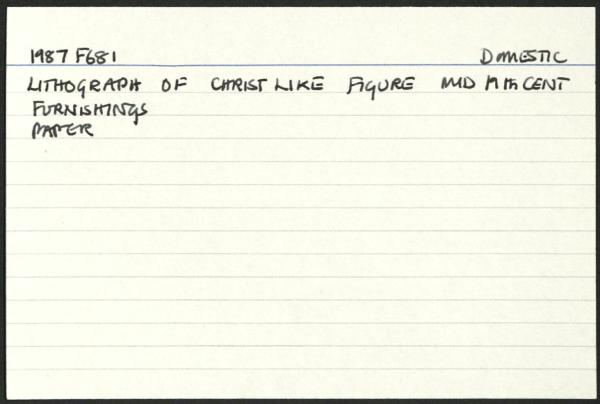 1987 F681 DOMESTIC
LITHOGRAPH OF CHRIST LIKE FIGURE MID 19th CENT
FURNISHINGS
PAPER